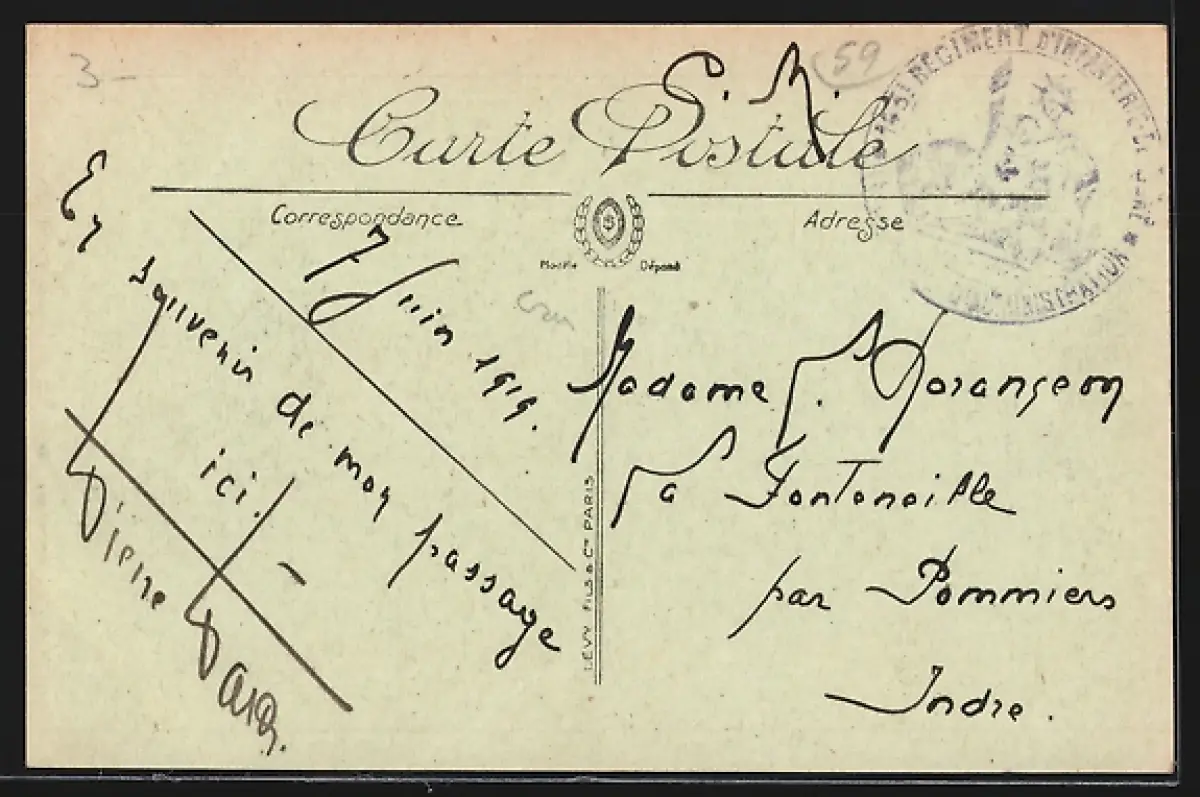 3-
59
F. M.
Carte Postale
RÉGIMENT D'INFANTERIE
Correspondance
Adresse
Modèle Déposé
7 Juin 1919.
En souvenir de mon passage
ici. -
Pierre
Madame
La Fonteneille
par Pommiers
Indre.
LEVY FILS & Cie PARIS